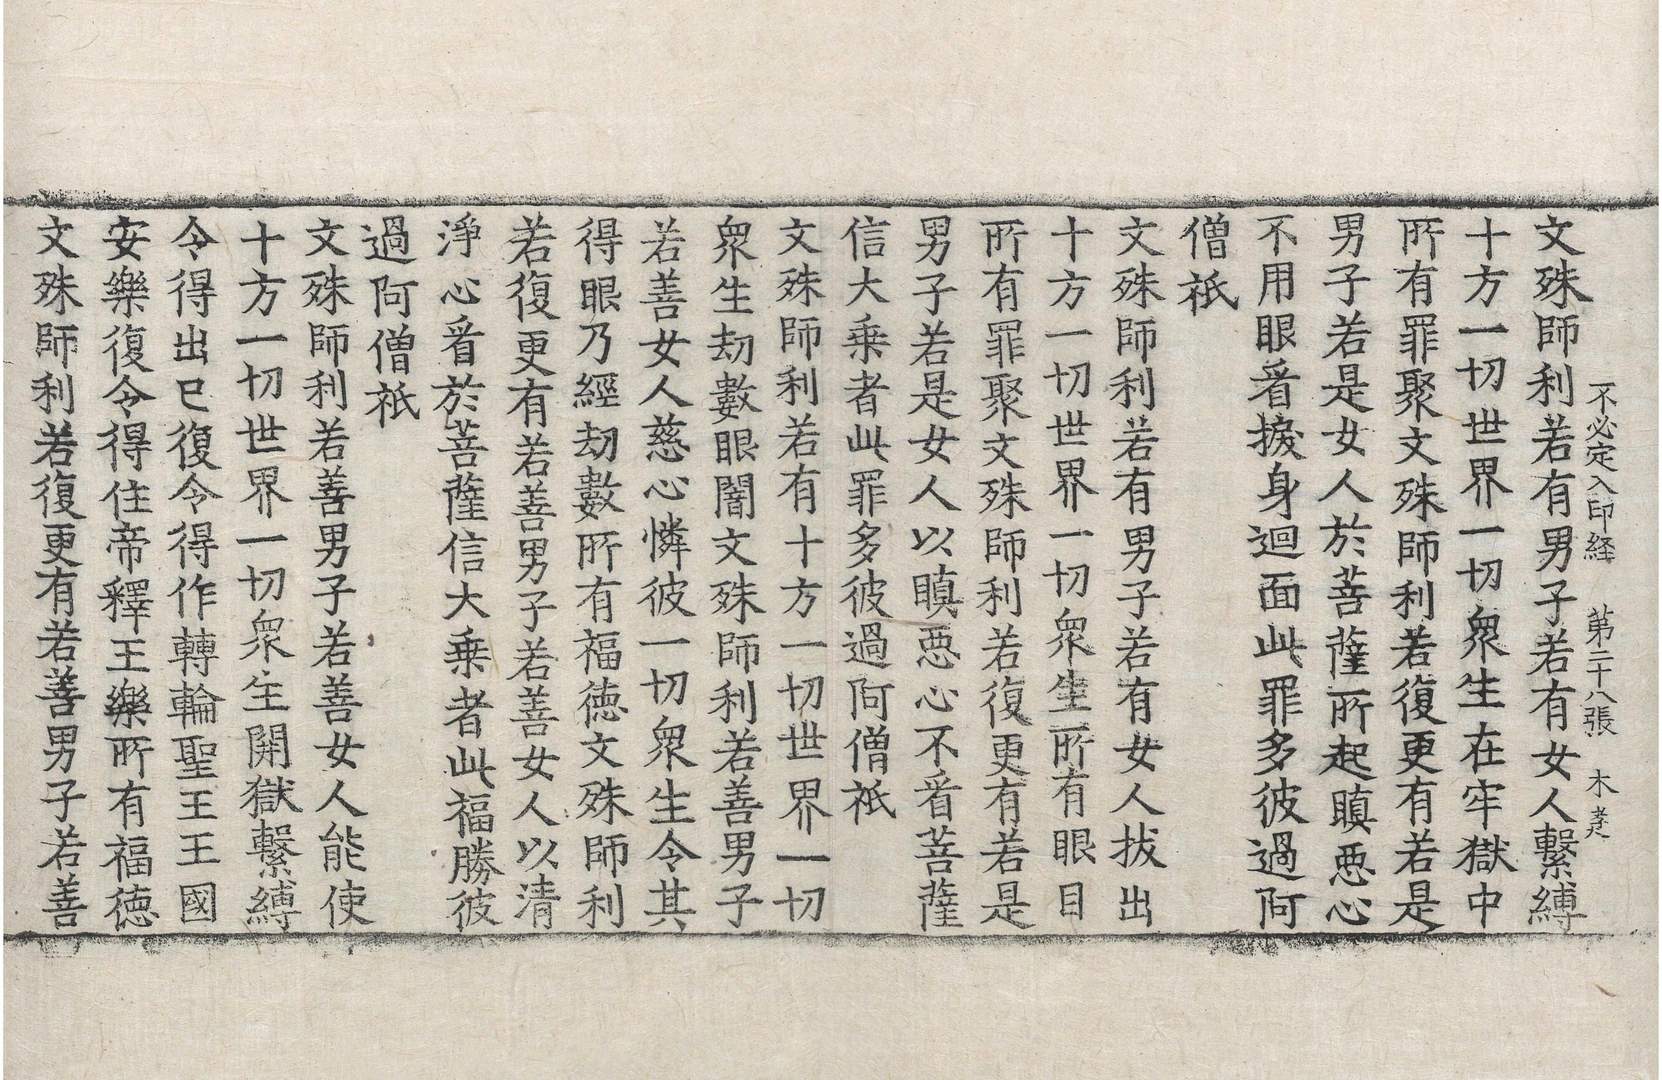 不必定入印経　第二十八張　木

文殊師利若有男子若有女人繫縛
十方一切世界一切衆生在牢獄中
所有罪聚文殊師利若復更有若是
男子若是女人於菩薩所起瞋惡心
不用眼看捩身迴面此罪多彼過阿
僧祇
文殊師利若有男子若有女人拔出
十方一切世界一切衆生所有眼目
所有罪聚文殊師利若復更有若是
男子若是女人以瞋惡心不看菩薩
信大乗者此罪多彼過阿僧祇
文殊師利若有十方一切世界一切
衆生劫數眼闇文殊師利若善男子
若善女人慈心憐彼一切衆生令其
得眼乃經劫數所有福德文殊師利
若復更有若善男子若善女人以清
淨心看於菩薩信大乗者此福勝彼
過阿僧祇
文殊師利若善男子若善女人能使
十方一切世界一切衆生開獄繫縛
令得出已復令得作轉輪聖王王國
安樂復令得住帝釋王樂所有福德
文殊師利若復更有若善男子若善